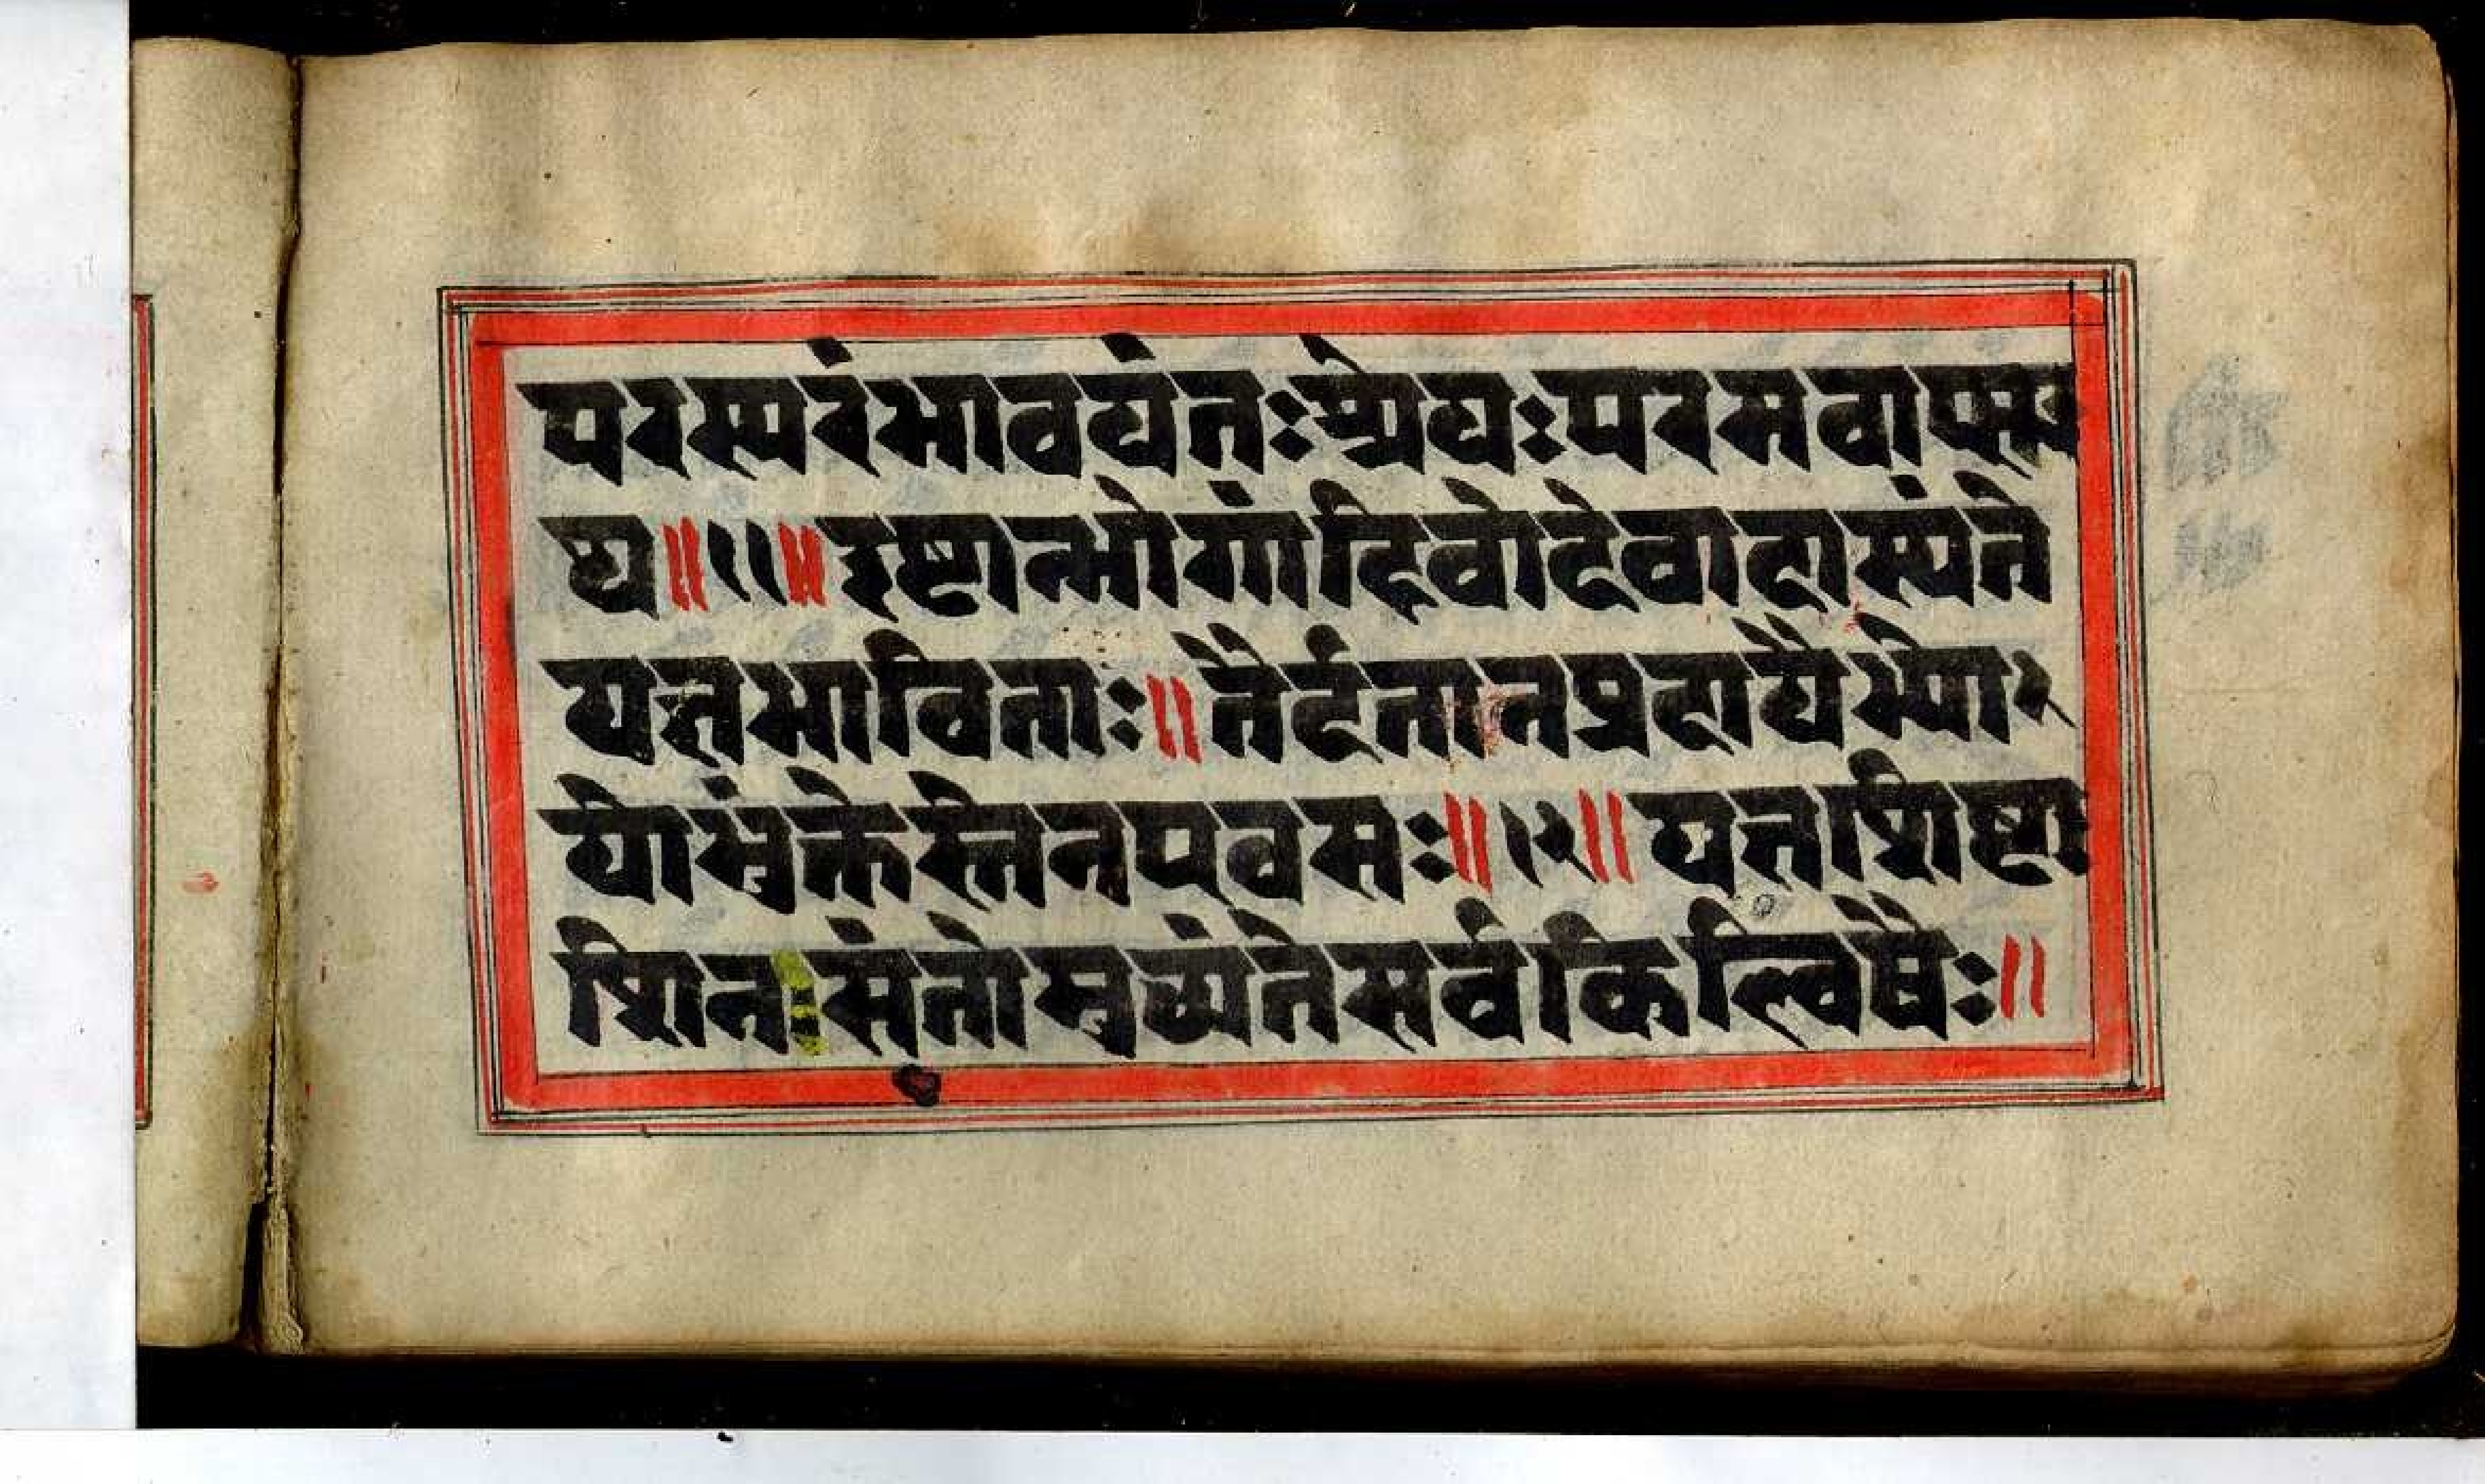 परस्परंभावयंतःश्रेयःपरमवाप्स्य
थ॥११॥इष्टान्भोगांहिवोदेवादास्यंते
यज्ञभाविताः॥तैर्दत्तानप्रदायैभ्योर
योभुंक्तेस्तेनएवसः॥१२॥यज्ञशिष्टा
शिनःसंतोमुच्यंतेसर्वकिल्विषैः॥